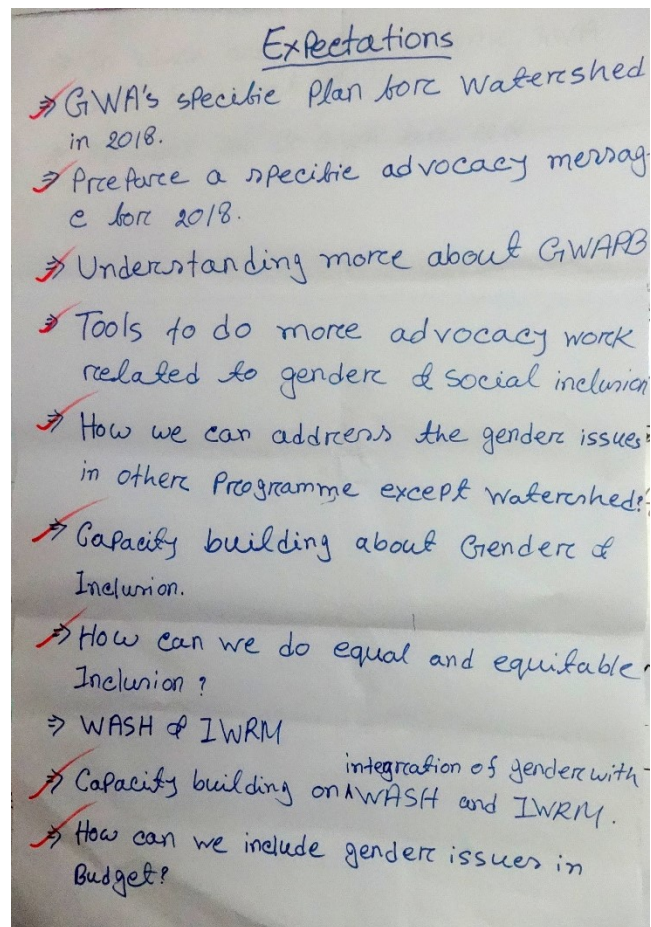 Expectations
⇒ GWA's specific Plan for Watershed
in 2018.
⇒ Prepare a specific advocacy messag-
e for 2018.
⇒ Understanding more about GWAPB
⇒ Tools to do more advocacy work
related to gender & social inclusion
⇒ How we can address the gender issues
in other Programme except watershed?
⇒ Capacity building about Gender &
Inclusion.
⇒ How can we do equal and equitable
Inclusion ?
⇒ WASH & IWRM
integration of gender with
⇒ Capacity building on ^ WASH and IWRM.
⇒ How can we include gender issues in
Budget?